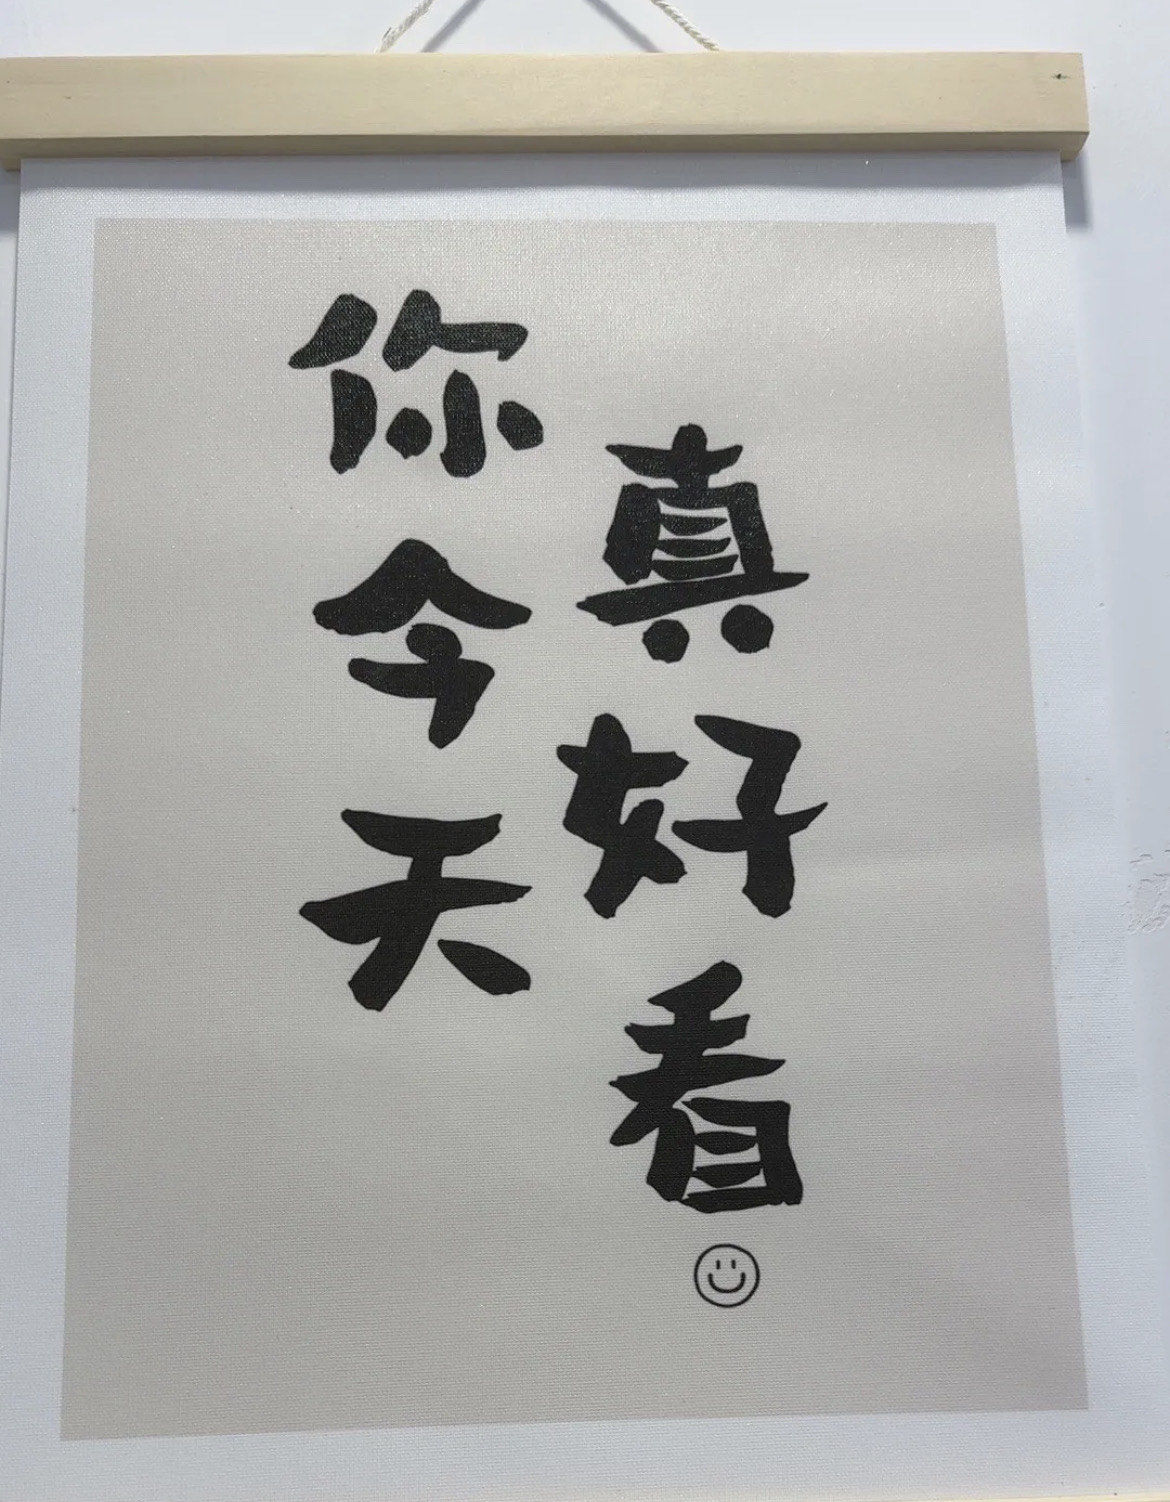 你今天
真好看